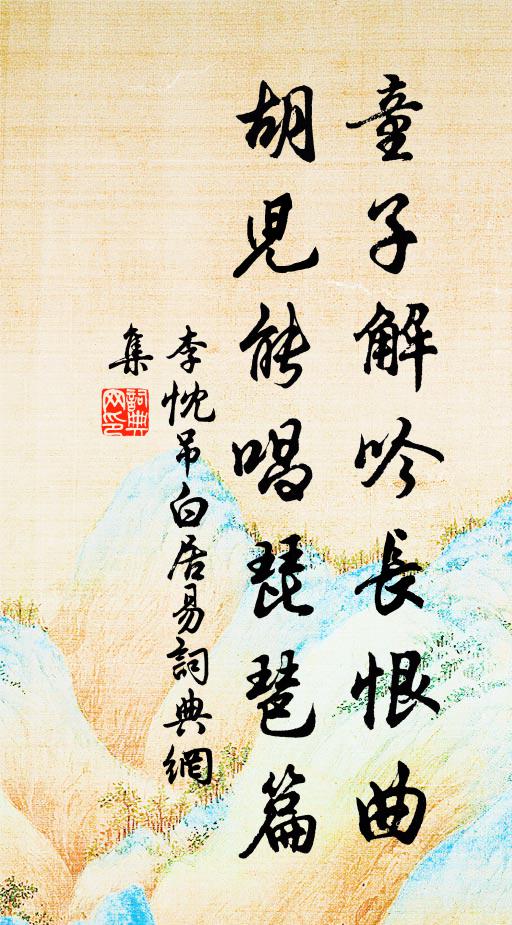 童子解吟長恨曲
胡兒能唱琵琶篇
李忱吊白居易詞典網
集
詞典
网印